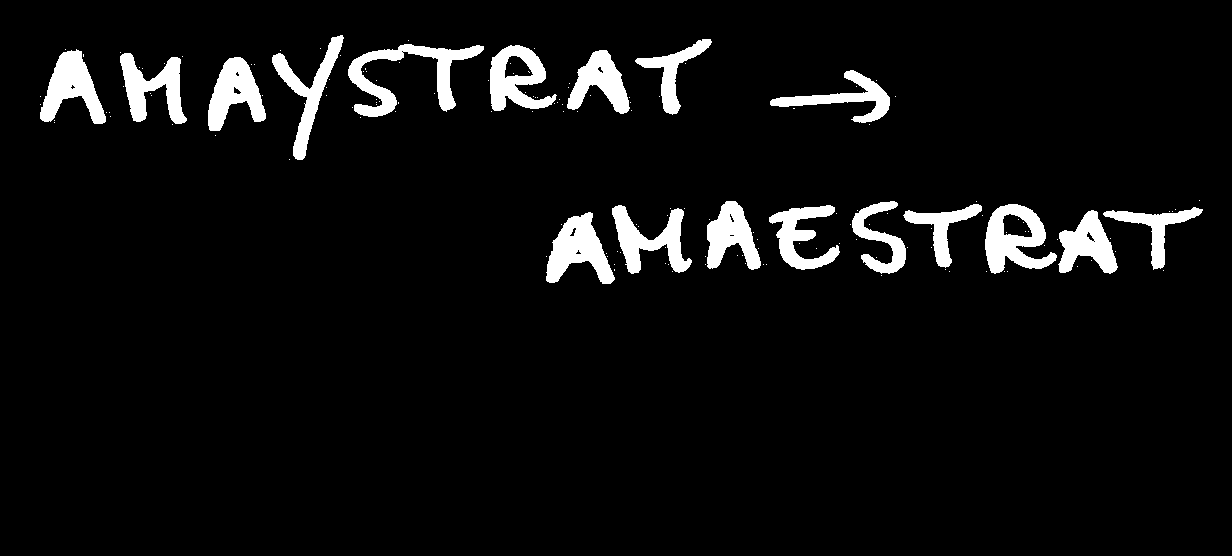 AMAYSTRAT →
AMAESTRAT